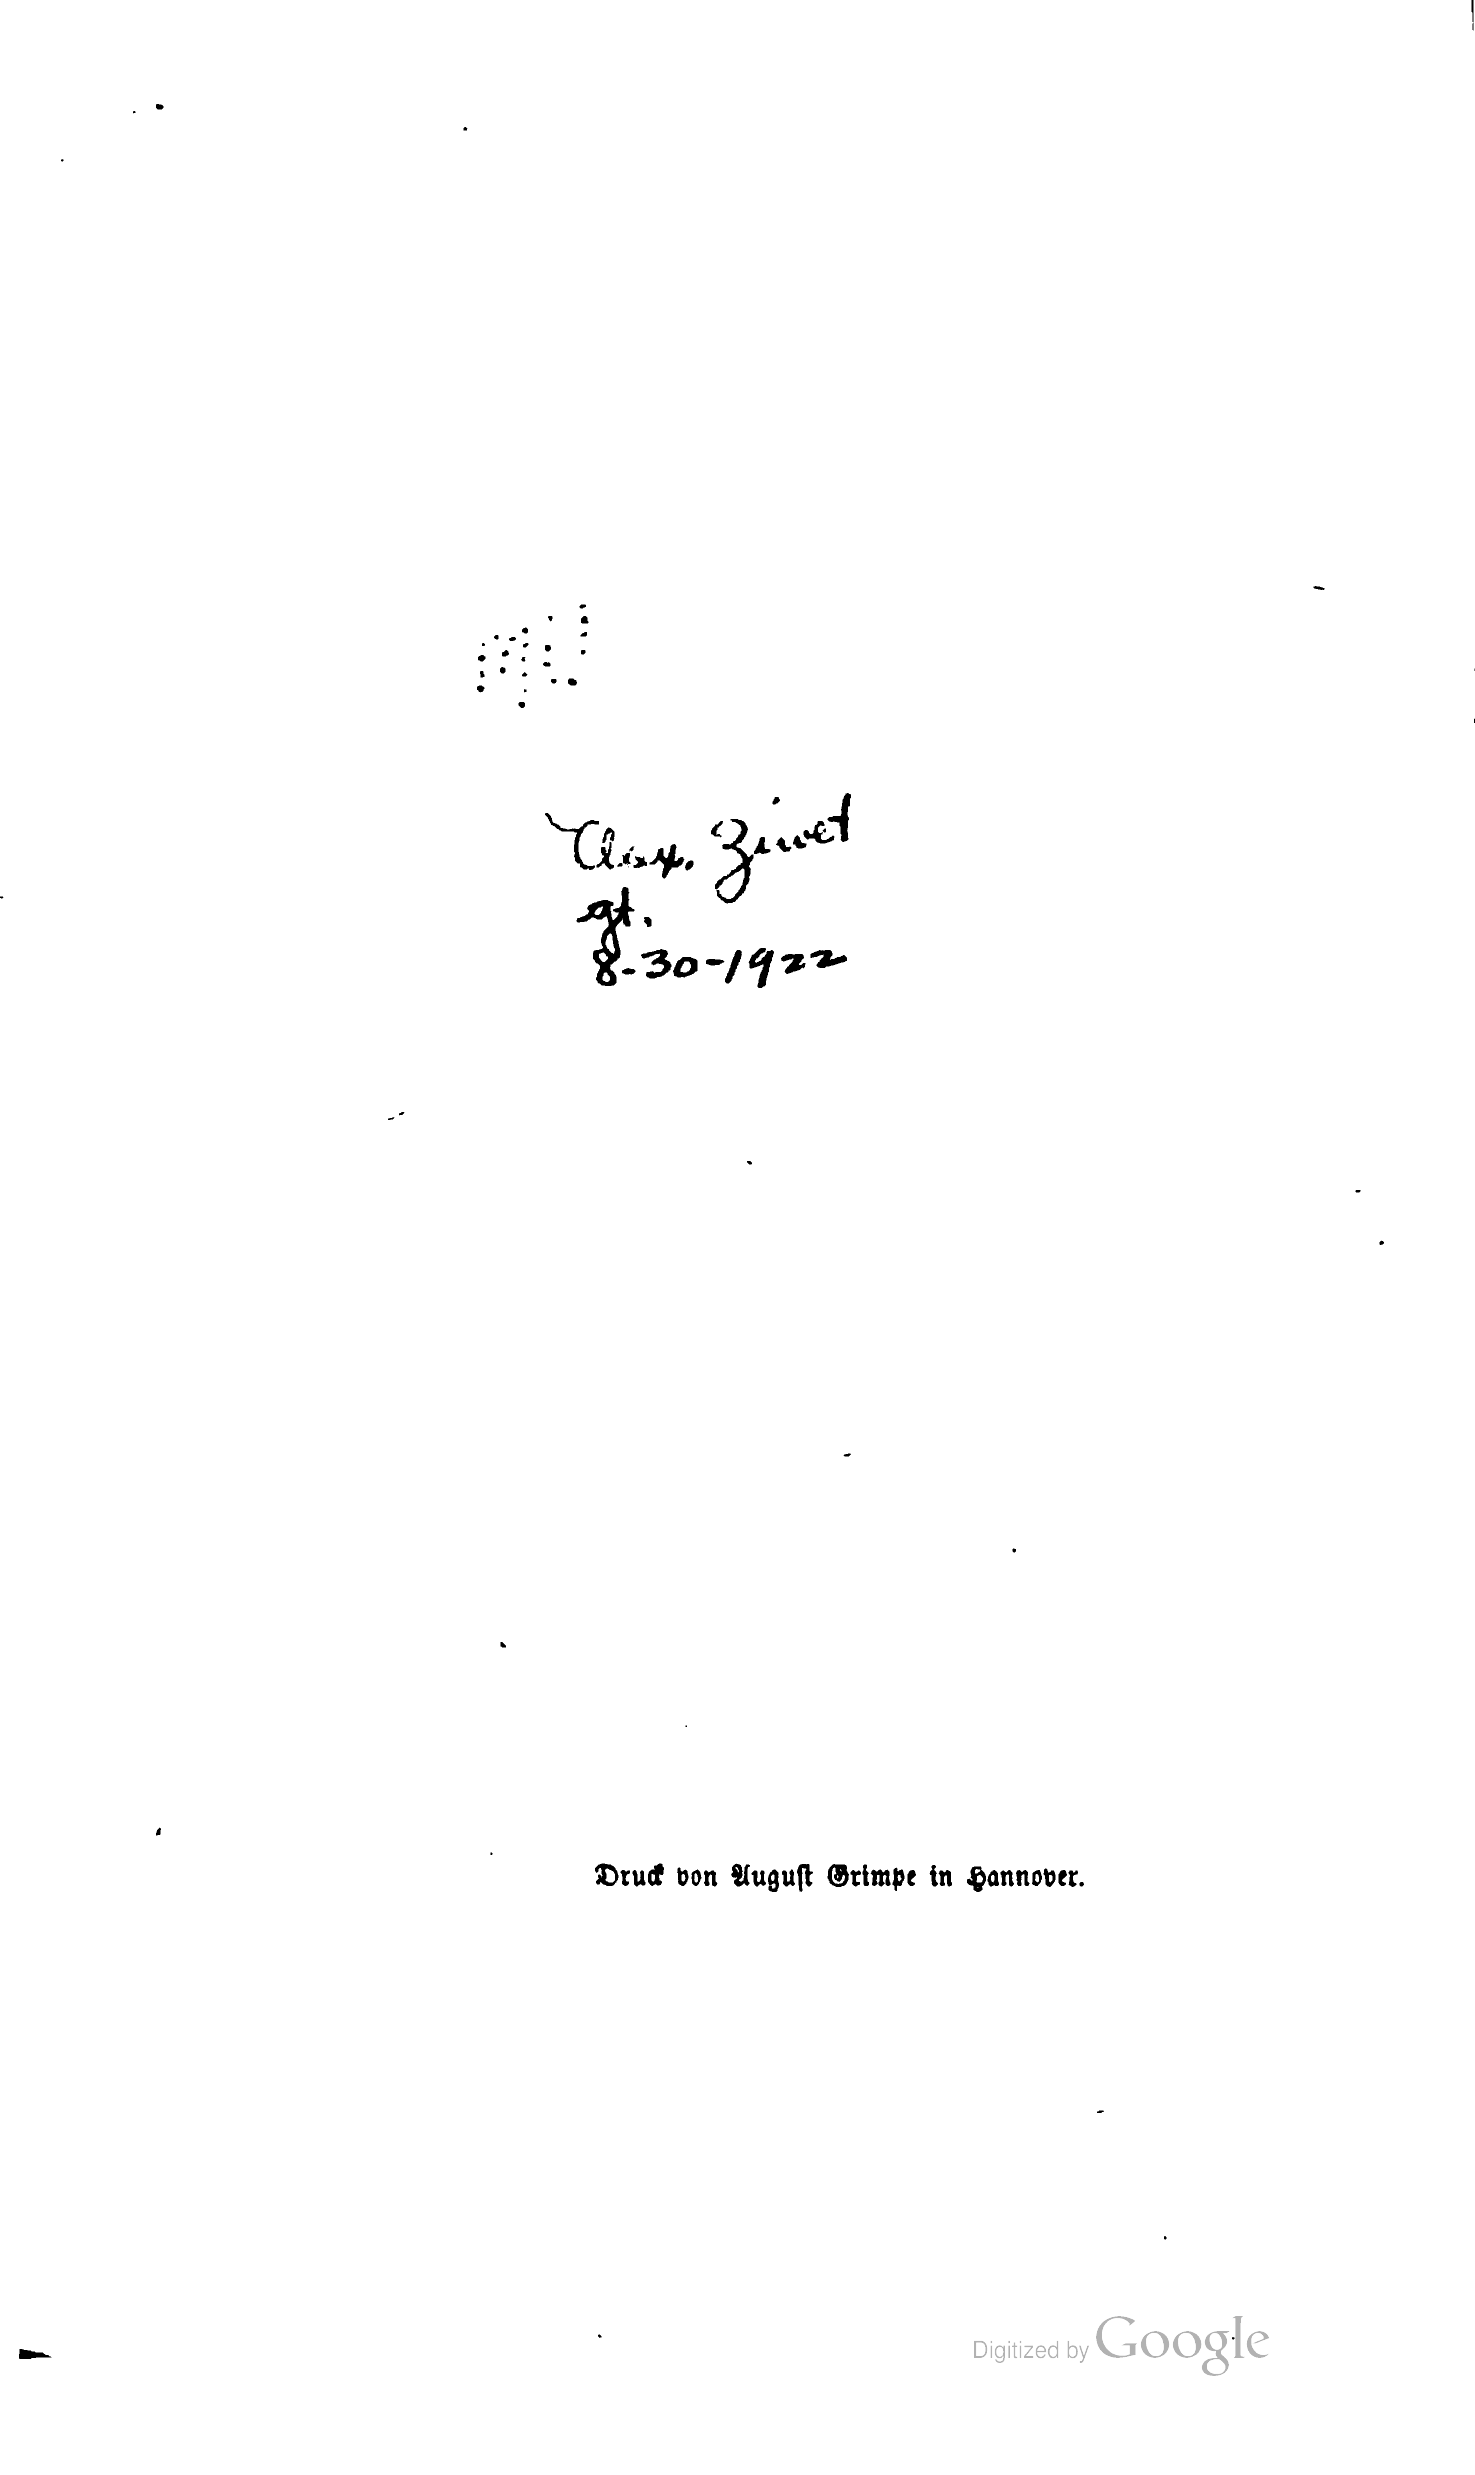 Alex. Ziwet
gt.
8-30-1922
Druck von August Grimpe in Hannover.
Digitized by Google